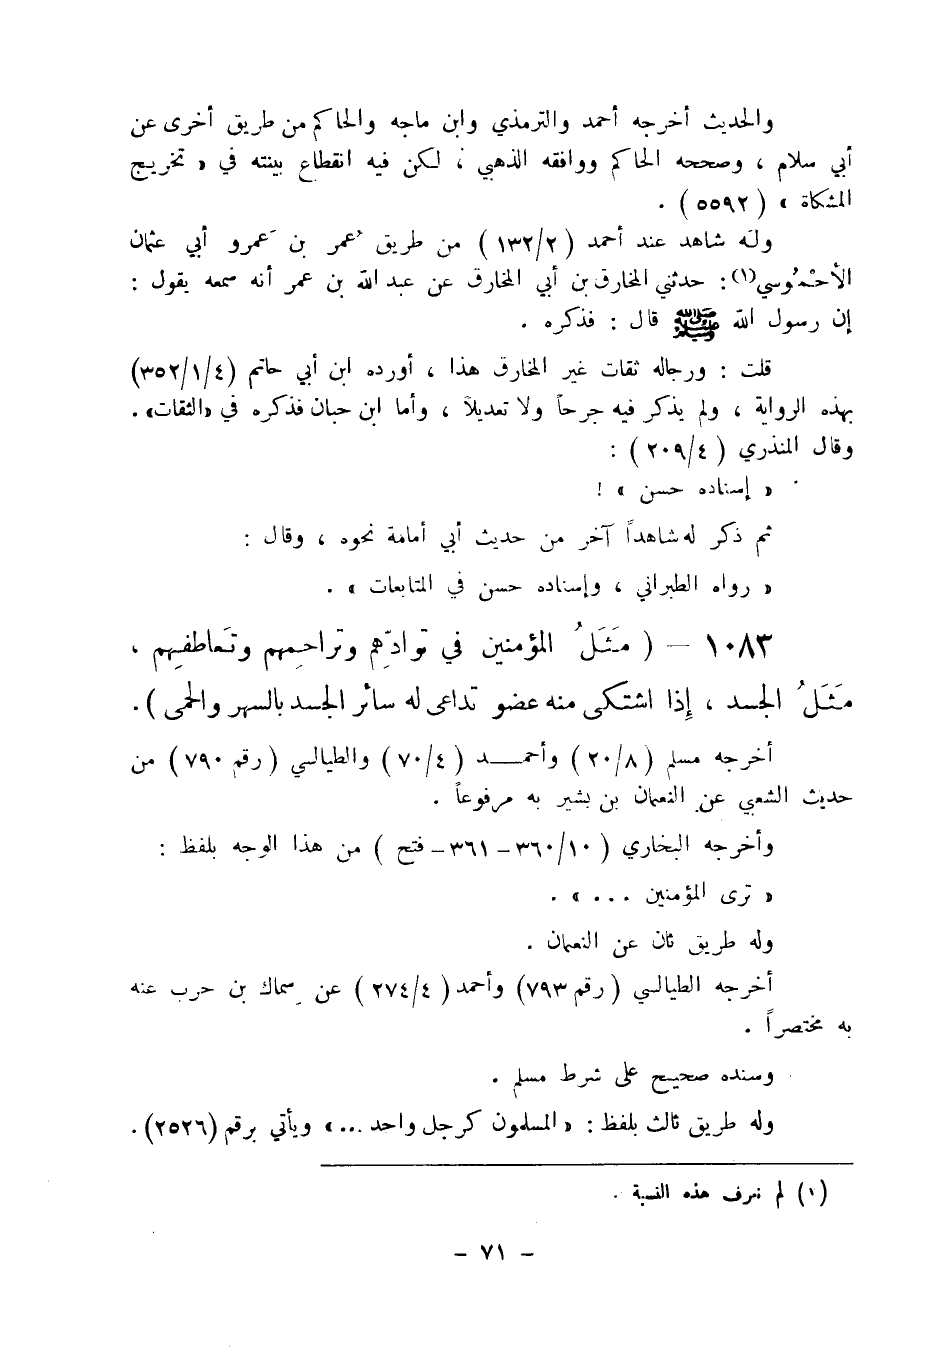 والحديث أخرجه أحمد والترمذي وابن ماجه والحاكم من طريق أخرى عن
أبي سلام ، وصححه الحاكم ووافقه الذهبي ؛ لكن فيه انقطاع بينته في « تخريج
المشكاة » ( ٥٥٩٢ ) .
وله شاهد عند أحمد ( ١٣٢/٢ ) من طريق عُمر بن عَمرو أبي عثمان
الأُحْمُوسي(١) : حدثني المخارق بن أبي المخارق عن عبد الله بن عمر أنه سمعه يقول :
إن رسول الله ﷺ قال : فذكره .
قلت : ورجاله ثقات غير المخارق هذا ، أورده ابن أبي حاتم (٣٥٢/١/٤)
بهذه الرواية ، ولم يذكر فيه جرحاً ولا تعديلاً ، وأما ابن حبان فذكره في «الثقات».
وقال المنذري ( ٢٠٩/٤ ) :
« إسناده حسن » !
ثم ذكر له شاهداً آخر من حديث أبي أمامة نحوه ، وقال :
« رواه الطبراني ، وإسناده حسن في المتابعات » .
١٠٨٣ – ( مَثَلُ المؤمنين في توادِّهم وتراحمِهم وتَعاطفِهم ،
مَثَلُ الجسد ، إذا اشتكى منه عضو تداعى له سائر الجسد بالسهر والحمى ) .
أخرجه مسلم ( ٢٠/٨ ) وأحمد ( ٧٠/٤ ) والطيالسي ( رقم ٧٩٠ ) من
حديث الشعبي عن النعمان بن بشير به مرفوعاً .
وأخرجه البخاري ( ٣٦٠/١٠ – ٣٦١ – فتح ) من هذا الوجه بلفظ :
« ترى المؤمنين ... » .
وله طريق ثان عن النعمان .
أخرجه الطيالسي ( رقم ٧٩٣) وأحمد ( ٢٧٤/٤ ) عن سماك بن حرب عنه
به مختصراً .
وسنده صحيح على شرط مسلم .
وله طريق ثالث بلفظ : « المسلمون كرجل واحد ... » ويأتي برقم (٢٥٢٦) .
(١) لم نعرف هذه النسبة .
– ٧١ –